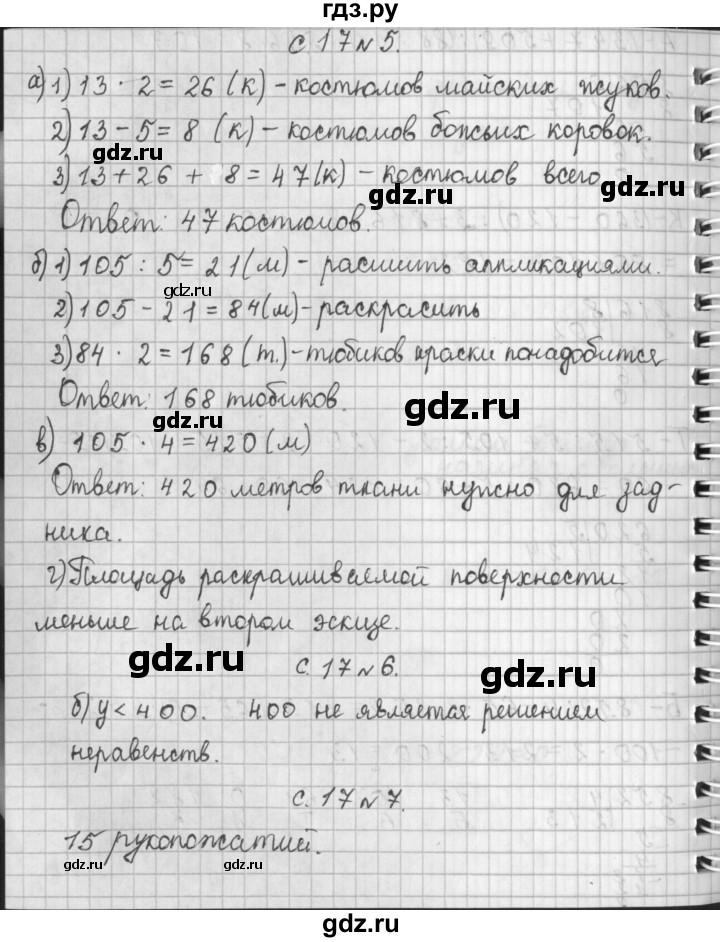 гдз.ру
с 17 № 5.
а) 1) 13 · 2 = 26 (к) - костюмов майских жуков.
2) 13 - 5 = 8 (к) - костюмов божьих коровок.
gdz.ru
3) 13 + 26 + 8 = 47 (к) - костюмов всего
gdz.ru
Ответ: 47 костюмов.
б) 1) 105 : 5 = 21 (м) - расшить аппликациями.
gdz.ru
2) 105 - 21 = 84 (м) - раскрасить
3) 84 · 2 = 168 (т.) - тюбиков краски понадобится
Ответ: 168 тюбиков.
gdz.ru
gdz.ru
в) 105 · 4 = 420 (м)
Ответ: 420 метров ткани нужно для зад-
ника.
г) Площадь раскрашиваемой поверхности
меньше на втором эскизе.
gdz.ru
с. 17 № 6.
gdz.ru
б) у < 400. 400 не является решением
неравенств.
с. 17 № 7.
15 рукопожатий.
gdz.ru
gdz.ru
gdz.ru